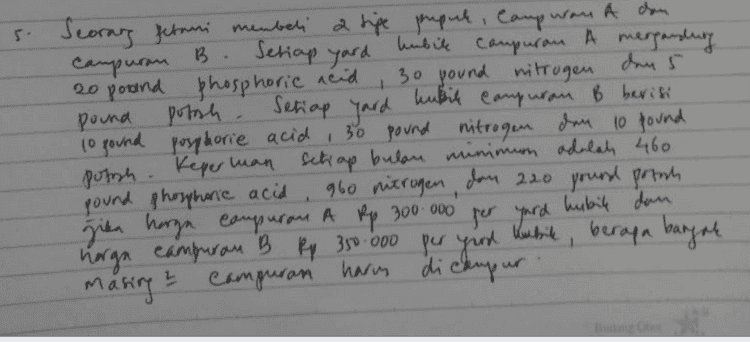 5. Seorang petani membeli 2 tipe pupuk, Campuran A dan
campuran B. Setiap yard kubik campuran A mengandung
20 pound phosphoric acid, 30 pound nitrogen dan 5
pound potash. Setiap yard kubik campuran B berisi
10 pound posphoric acid, 30 pound nitrogen dan 10 pound
potash. Keperluan setiap bulan minimum adalah 460
pound phosphoric acid, 960 nitrogen, dan 220 pound potash
jika harga campuran A Rp 300.000 per yard kubik dan
harga campuran B Rp 350.000 per yard kubik, berapa banyak
masing2 campuran harus dicampur.
Bintang Obor